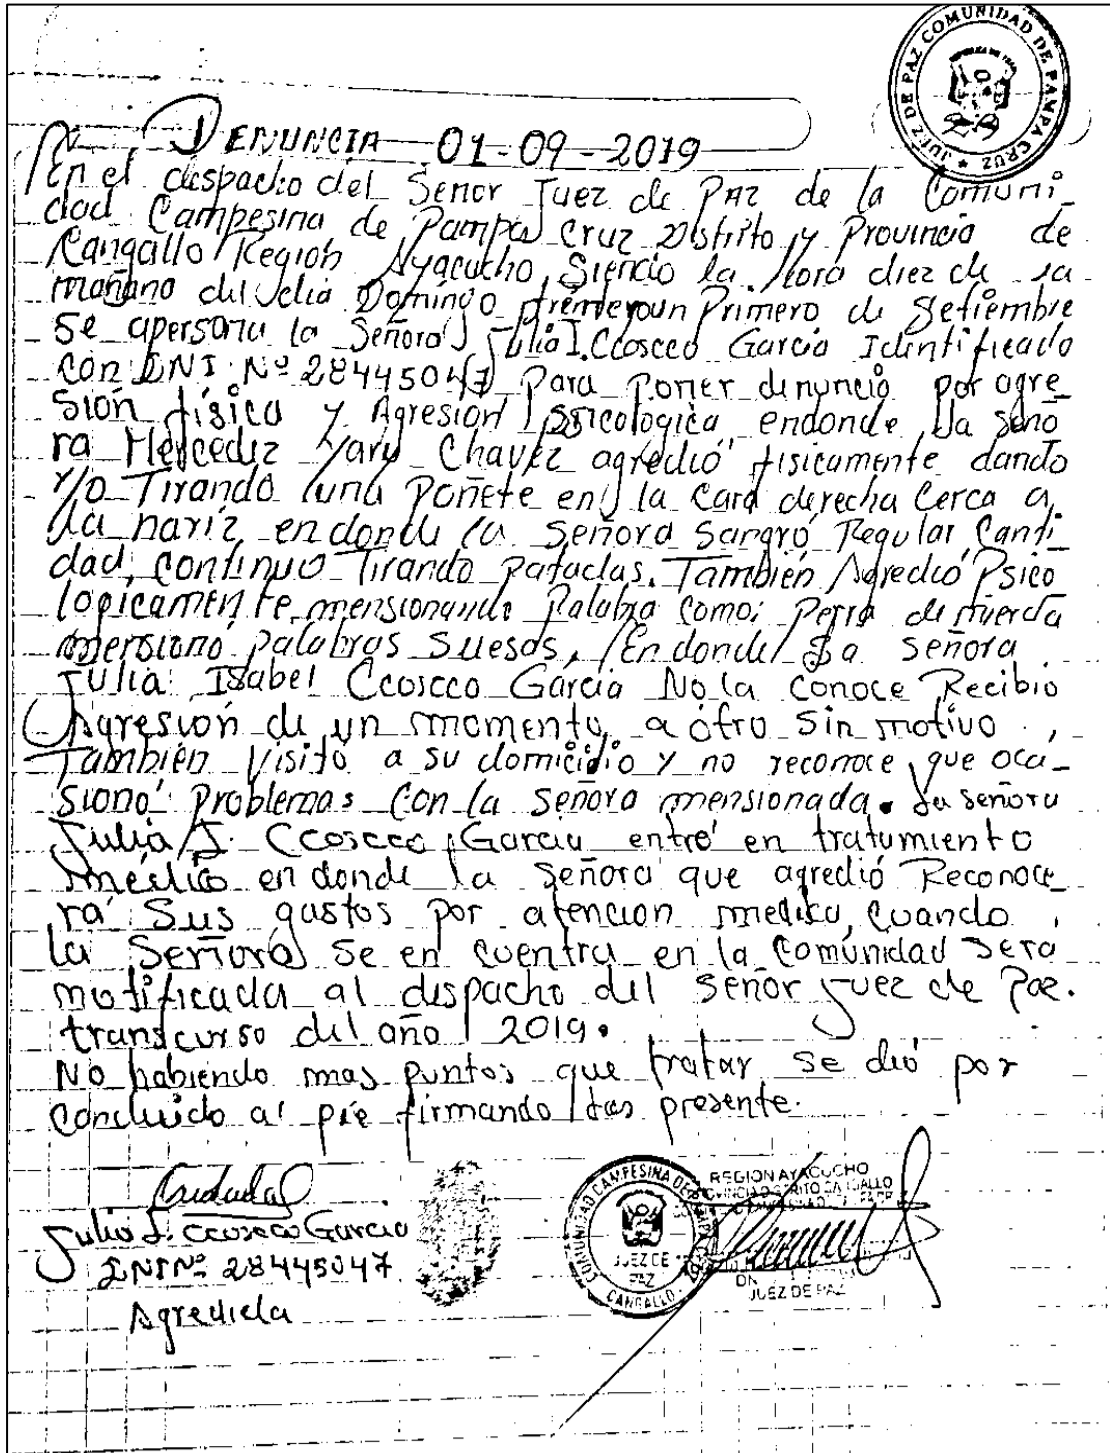 JUEZ DE PAZ COMUNIDAD DE PAMPA CRUZ
DENUNCIA 01-09-2019
En el despacho del Señor Juez de PAZ de la Comuni
dad Campesina de Pampa Cruz Distrito y Provincia de
Cangallo Región Ayacucho, Siendo la hora diez de la
mañana del dia Domingo Primero de Setiembre
Se apersona la Señora Julia I. Ccoscco García Identificado
con DNI Nº 28445047 Para Poner denuncia por agre
sión física y Agresión Psicologica endonde La Seño
ra Mercedez Yary Chavez agredió fisicamente dando
Y/o Tirando una Poñete en la Cara derecha Cerca a
la nariz, en donde la Señora Sangró Regular Canti
dad, Continuo Tirando Patadas. También Agredió Psico
logicamente mensionando Palabra Como: Perra de mierda
mensionó Palabras Suesas, En donde La Señora
Julia Isabel Ccoscco García No la Conoce Recibio
Agresión de un momento a otro Sin motivo,
También Visitó a su domicidio y no reconoce que oca_
sionó Problemas Con la Señora mensionada. La señora
Julia I. Ccoscco García entró en tratamiento
Médico en donde la Señora que agredió Reconoce_
rá Sus gastos por atencion medica, Cuando
la Señora Se en cuentra en la Comunidad Sera
notificada al despacho del Señor Juez de Paz.
transcurso del año 2019.
No habiendo mas puntos que tratar se dió por
Concluido al pie firmando los presente.
Julia I. Ccoscco García
DNI Nº 28445047
Agredida
COMUNIDAD CAMPESINA DE
JUEZ DE
PAZ
CANGALLO
REGION AYACUCHO
JUEZ DE PAZ